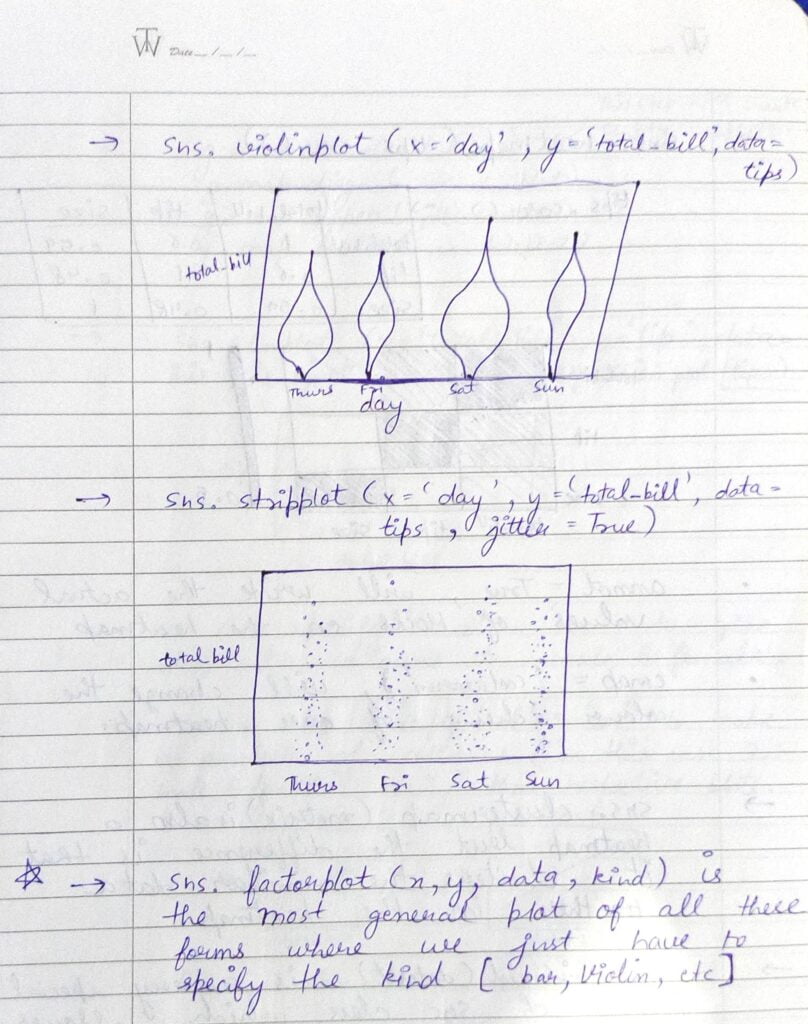 TW Date__/__/__
→ sns. violinplot (x = 'day' , y = 'total_bill', data =
tips)
total_bill
Thurs Fri Sat Sun
day
→ sns. stripplot (x = 'day' , y = 'total_bill', data =
tips , jitter = True)
total_bill
Thurs Fri Sat Sun
☆ → sns. factorplot (x, y, data, kind) is
the most general plot of all these
forms where we just have to
specify the kind [ bar, Violin, etc]